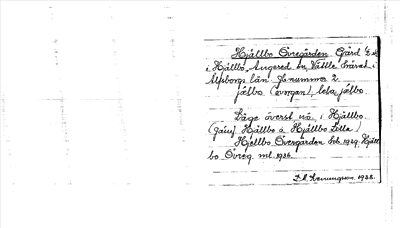 Hjällbo Övregården Gård ½ mt
i Hjällbo, Angered sn, Vättle härad i
Älfsborgs län. Jb.nummer 2.
jälbo (övrgan), leba jälbo.
Läge överst nö. i Hjällbo.
(Jämf. Hjällbo o Hjällbo Lilla)
Hjellbo Övregården Jrb. 1929, Hjäll-
bo Övreg. ml. 1936.
1938.